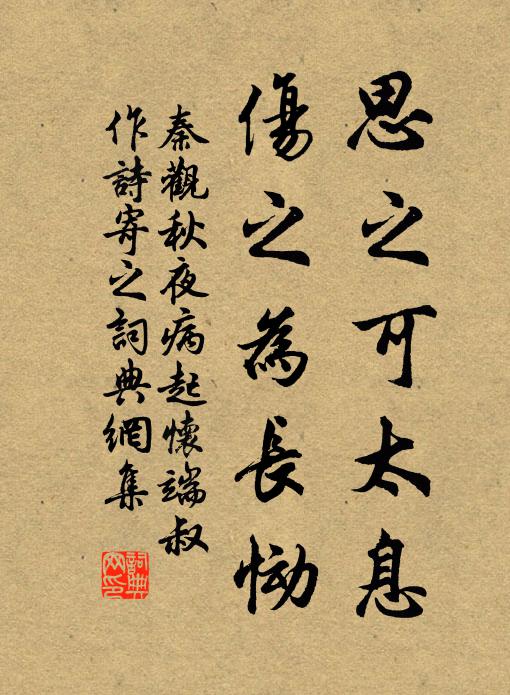 思之可太息
傷之為長慟
秦觀秋夜病起懷端叔
作詩寄之詞典網集
詞典網印